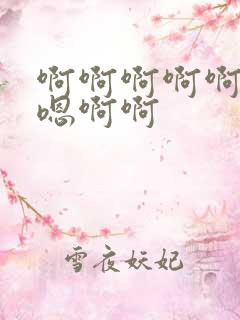 啊啊啊啊啊
嗯啊啊
雪夜妖妃